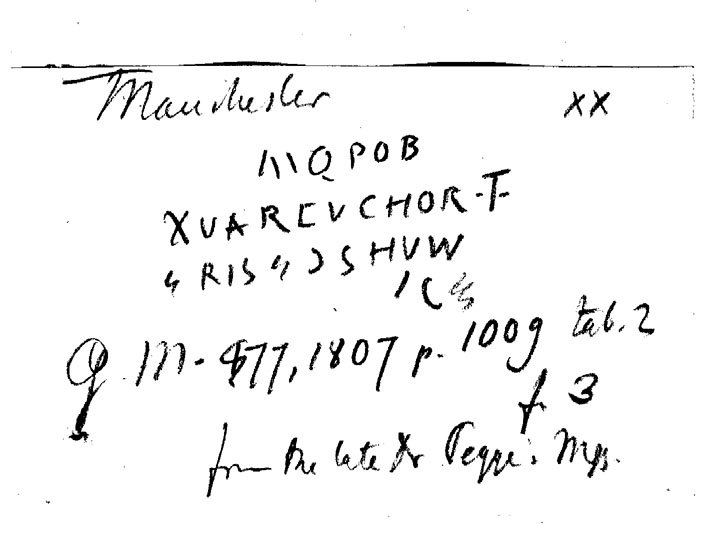 Manchester XX
M Q P O B
X V A R E V C H O R . T
RIS S H V W
I C
G. M. 77, 1807 p. 1009 tab. 2
f. 3
from the late Dr Pegge's Mss.